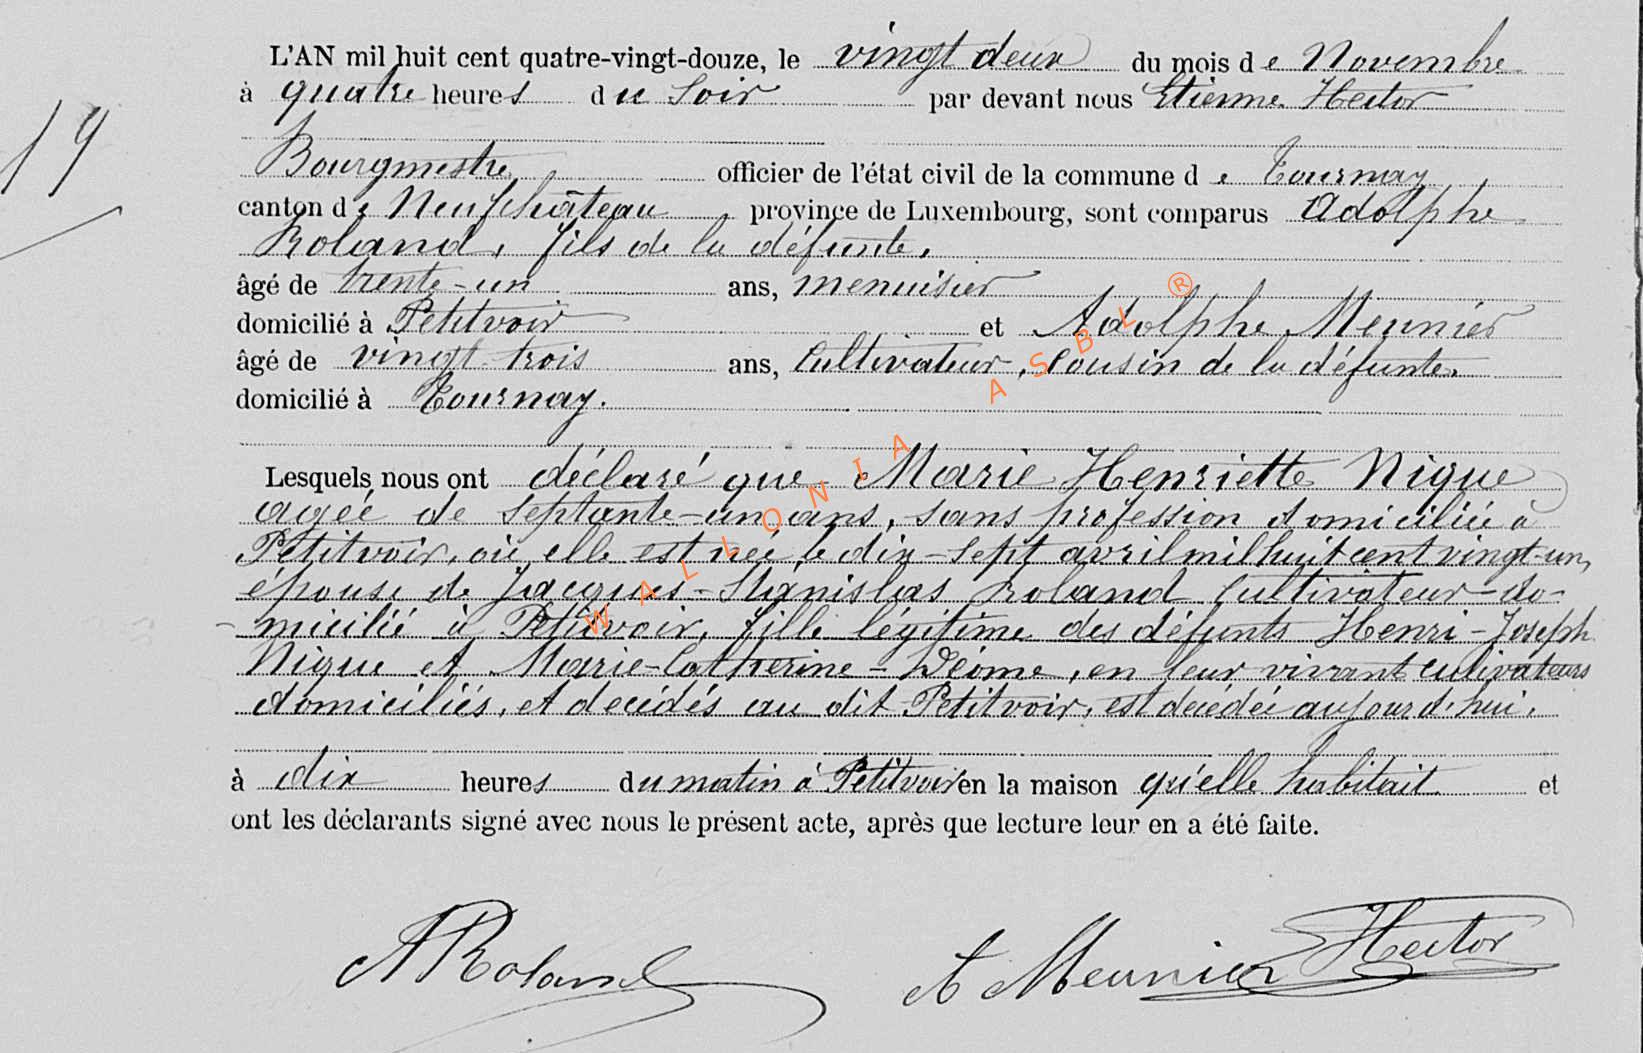 L'AN mil huit cent quatre-vingt-douze, le vingt deux du mois de Novembre
à quatre heures du soir par devant nous Etienne Hector
19
Bourgmestre officier de l'état civil de la commune de Tournay
canton de Neufchâteau province de Luxembourg, sont comparus Adolphe
Roland, fils de la défunte,
âgé de trente-un ans, menuisier
domicilié à Petitvoir et Adolphe Meunier
âgé de vingt trois ans, Cultivateur, Cousin de la défunte,
domicilié à Tournay.
Lesquels nous ont déclaré que Marie Henriette Nique
agéé de septante-un ans, sans profession domiciliée à
Petitvoir, où elle est née le dix-sept avril mil huit cent vingt-un,
épouse de Jacques-Stanislas Roland Cultivateur do-
micilié à Petitvoir, fille légitime des défunts Henri-Joseph
Nique et Marie-Catherine-Déome, en leur vivant cultivateurs
domiciliés, et décédés au dit Petitvoir, est décédée aujourd'hui,
à dix heures du matin à Petitvoir en la maison qu'elle habitait et
ont les déclarants signé avec nous le présent acte, après que lecture leur en a été faite.
A Roland A Meunier Hector
WALLONIA ASBL ®